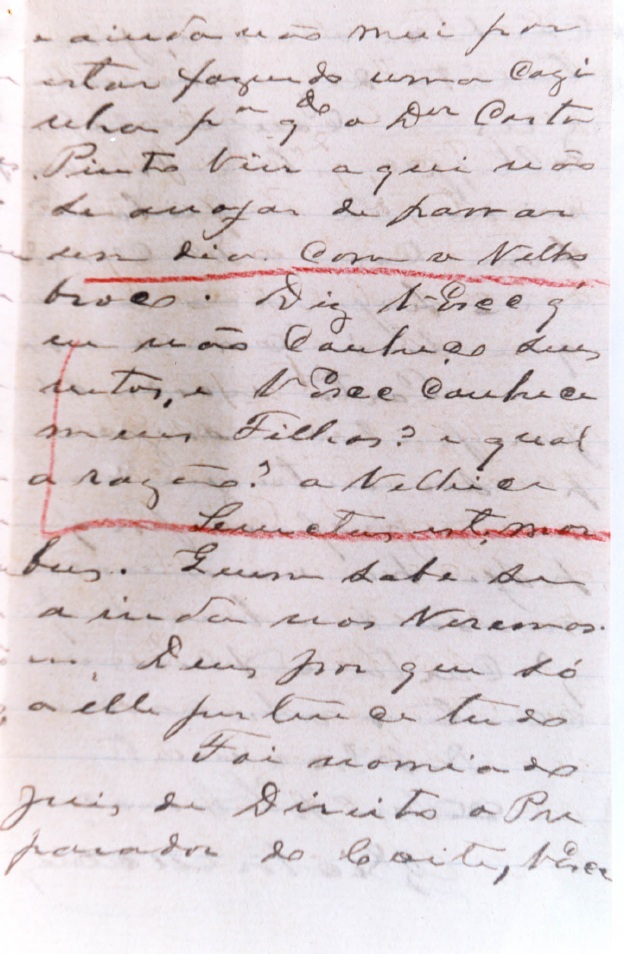 e ainda não mui por
estar fazendo uma Cazi
nha pra qdo o Dor Costa
Pinto vier aqui não
se anojar de passar
um dia Com o Velho
broco. Diz VExce q'
eu não Conheço seus
netos, e VExce Conhece
meus Filhos? e qual
a razão? a Velhice
Senectus est mor
bus. Quem sabe se
ainda nos Veremos.
Deus por que só
a elle pertence tudo
Foi nomiado
Juis de Direito o Pre
parador do Coité, VExce